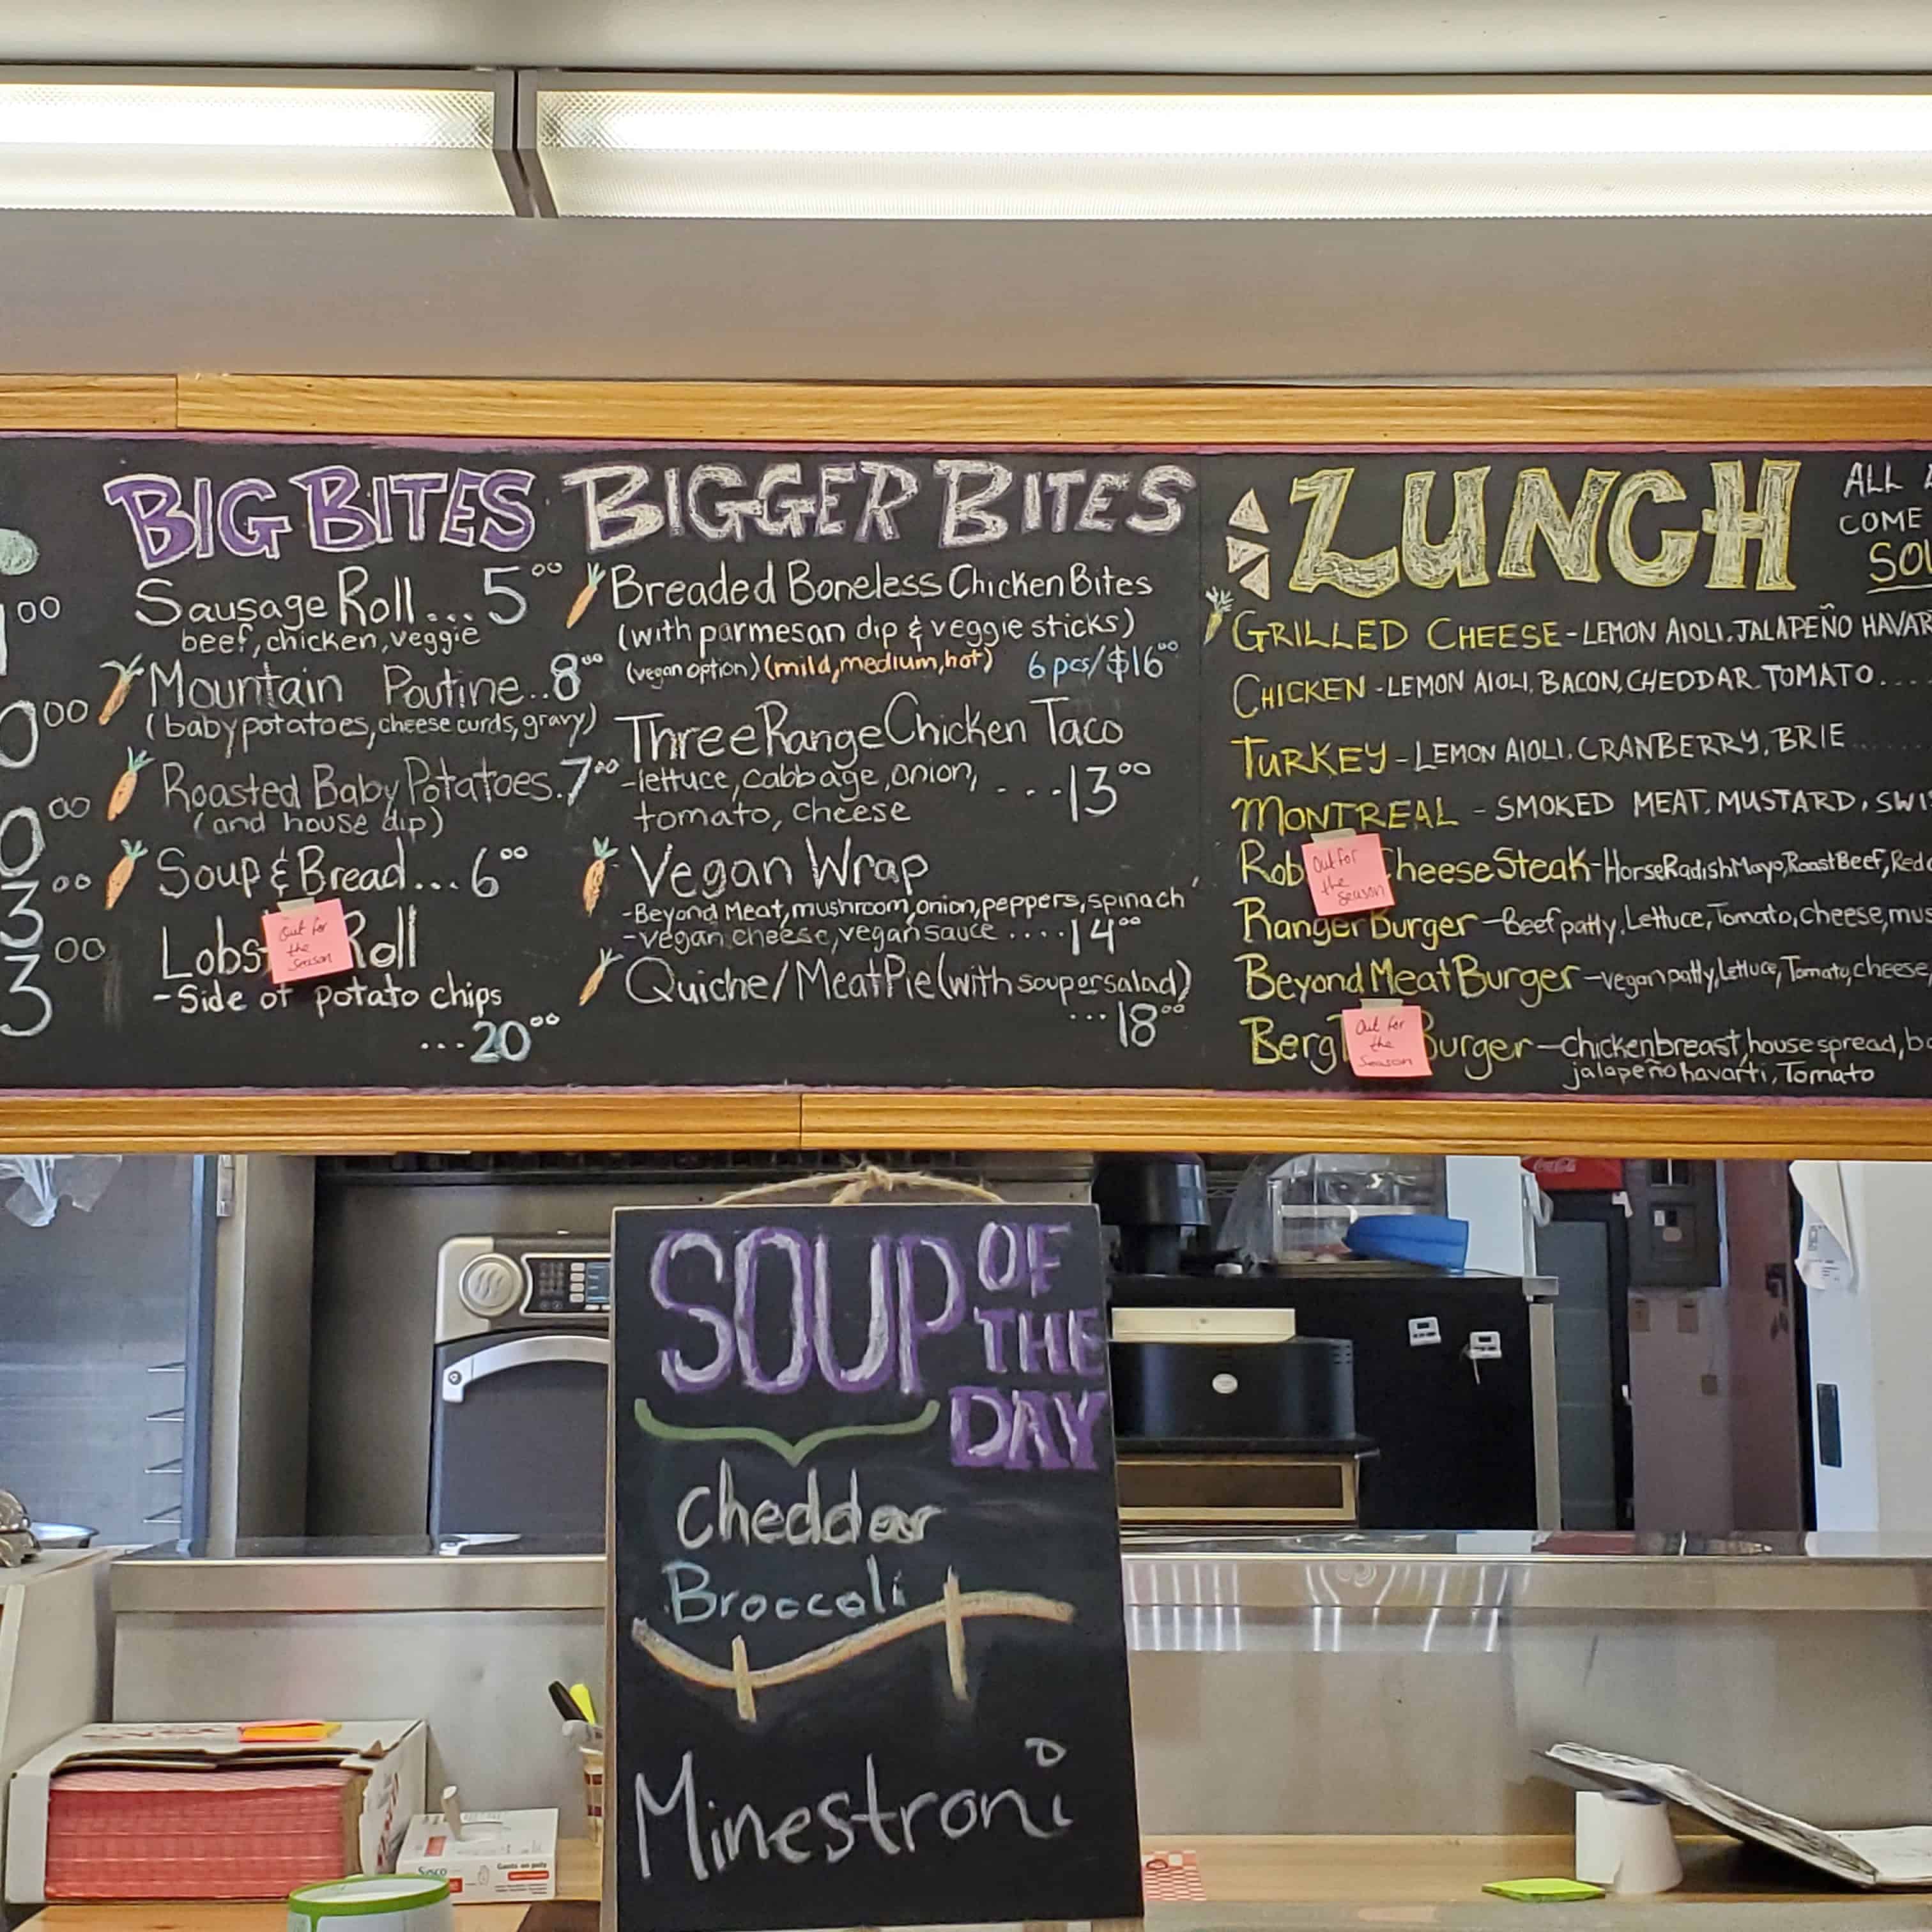 BIG BITES
Sausage Roll... 5⁰⁰
beef, chicken, veggie
Mountain Poutine..8⁰⁰
(baby potatoes, cheese curds, gravy)
Roasted Baby Potatoes.7⁰⁰
(and house dip)
Soup & Bread... 6⁰⁰
Lobs Roll
Out for
the
Season
- Side of potato chips
...20⁰⁰
1⁰⁰
0⁰⁰
0⁰⁰
3⁰⁰
3⁰⁰
BIGGER BITES
Breaded Boneless Chicken Bites
(with parmesan dip & veggie sticks)
(vegan option) (mild, medium, hot) 6 pcs/$16⁰⁰
Three Range Chicken Taco
-lettuce, cabbage, onion,
tomato, cheese ...13⁰⁰
Vegan Wrap
-Beyond Meat, mushroom, onion, peppers, spinach
-vegan cheese, vegan sauce ....14⁰⁰
Quiche/Meat Pie (with soup or salad)
...18⁰⁰
ZUNCH
ALL
COME
SOU
GRILLED CHEESE - LEMON AIOLI, JALAPEÑO HAVAR
CHICKEN - LEMON AIOLI, BACON, CHEDDAR TOMATO....
TURKEY - LEMON AIOLI, CRANBERRY, BRIE
MONTREAL - SMOKED MEAT, MUSTARD, SWIS
Rob Cheese Steak - Horse Radish Mayo, Roast Beef, Red
Out for
the
Season
Ranger Burger - Beef patty, Lettuce, Tomato, cheese, mus
Beyond Meat Burger - vegan patty, Lettuce, Tomato, cheese,
Berg Burger - chicken breast, house spread, ba
jalapeño havarti, Tomato
Out for
the
Season
Coca-Cola
SOUP OF
THE
DAY
Cheddar
Broccoli
Minestroni
Sysco
Gants en poly